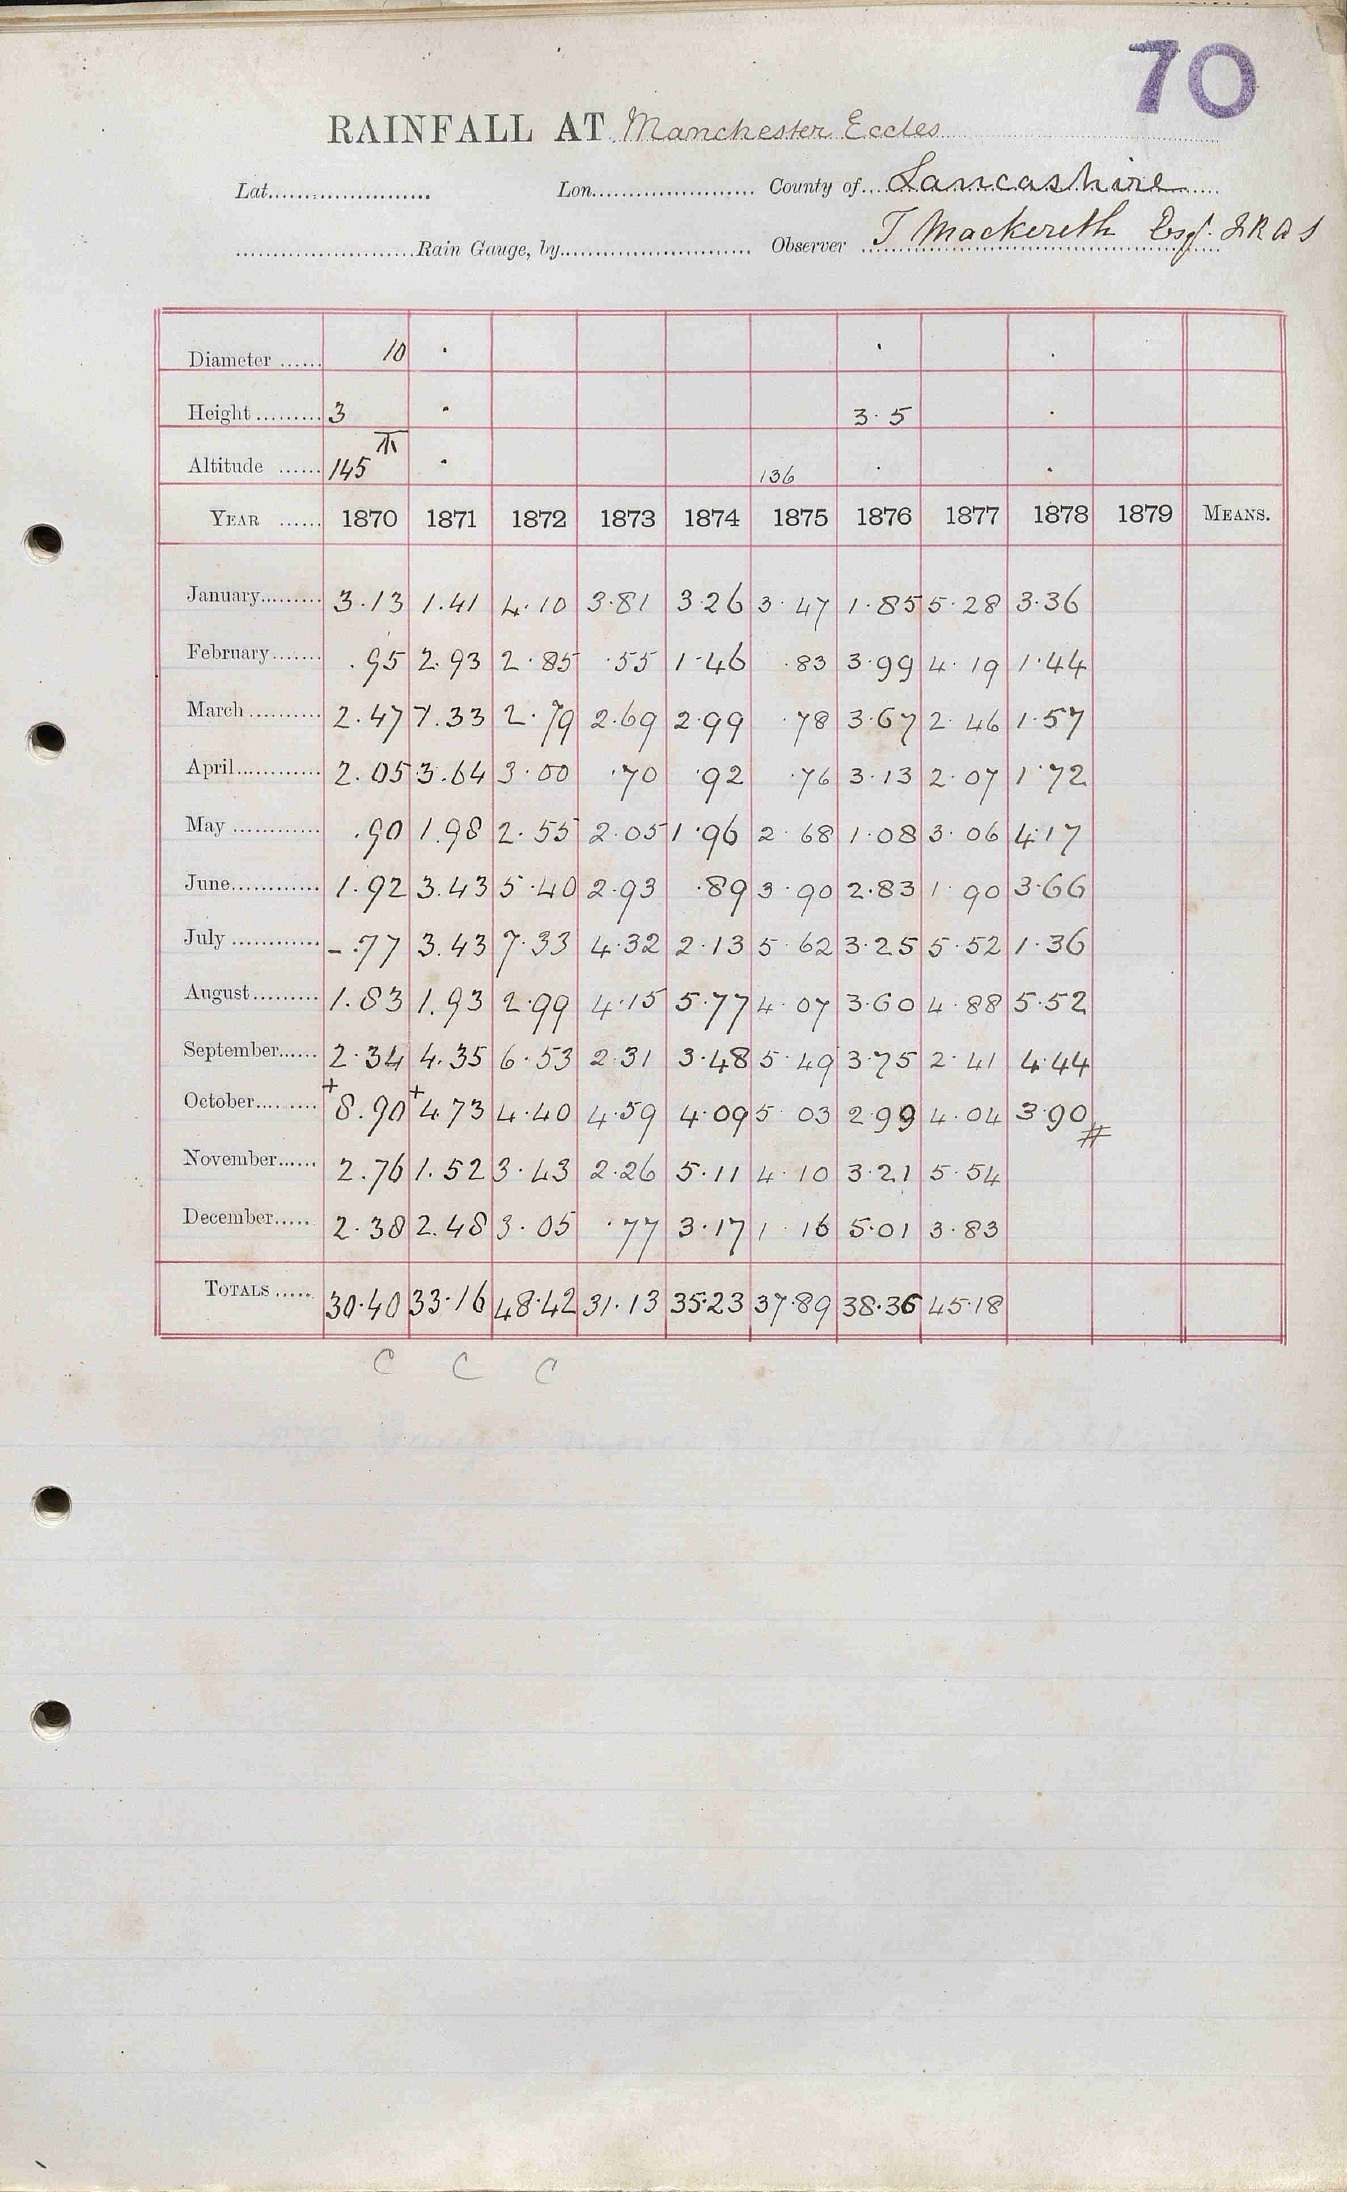 70
RAINFALL AT Manchester Eccles
Lat. Lon. County of Lancashire
Rain Gauge, by Observer T Mackereth Esq. F R A S
Diameter 10 · · ·
Height 3 · 3·5 ·
Altitude 145 · 136 · ·
YEAR 1870 1871 1872 1873 1874 1875 1876 1877 1878 1879 MEANS.
January 3·13 1.41 4·10 3·81 3·26 3·47 1·85 5·28 3·36
February .95 2.93 2·85 ·55 1·46 ·83 3·99 4·19 1·44
March 2·47 1.33 2·79 2·69 2·99 ·78 3·67 2·46 1·57
April 2·05 3.64 3·00 ·70 ·92 ·76 3·13 2·07 1·72
May .90 1.98 2·55 2·05 1·96 2·68 1·08 3·06 4·17
June 1·92 3.43 5·40 2·93 ·89 3·90 2·83 1·90 3·66
July –.77 3.43 7·33 4·32 2·13 5·62 3·25 5·52 1·36
August 1.83 1.93 2·99 4·15 5·77 4·07 3·60 4·88 5·52
September 2·34 4.35 6·53 2·31 3·48 5·49 3·75 2·41 4·44
October +8.90 +4.73 4·40 4·59 4·09 5·03 2·99 4·04 3·90 #
November 2.76 1.52 3·43 2·26 5·11 4·10 3·21 5·54
December 2·38 2.48 3·05 ·77 3·17 1·16 5·01 3·83
TOTALS 30·40 33·16 48·42 31·13 35·23 37·89 38·36 45·18
C C C